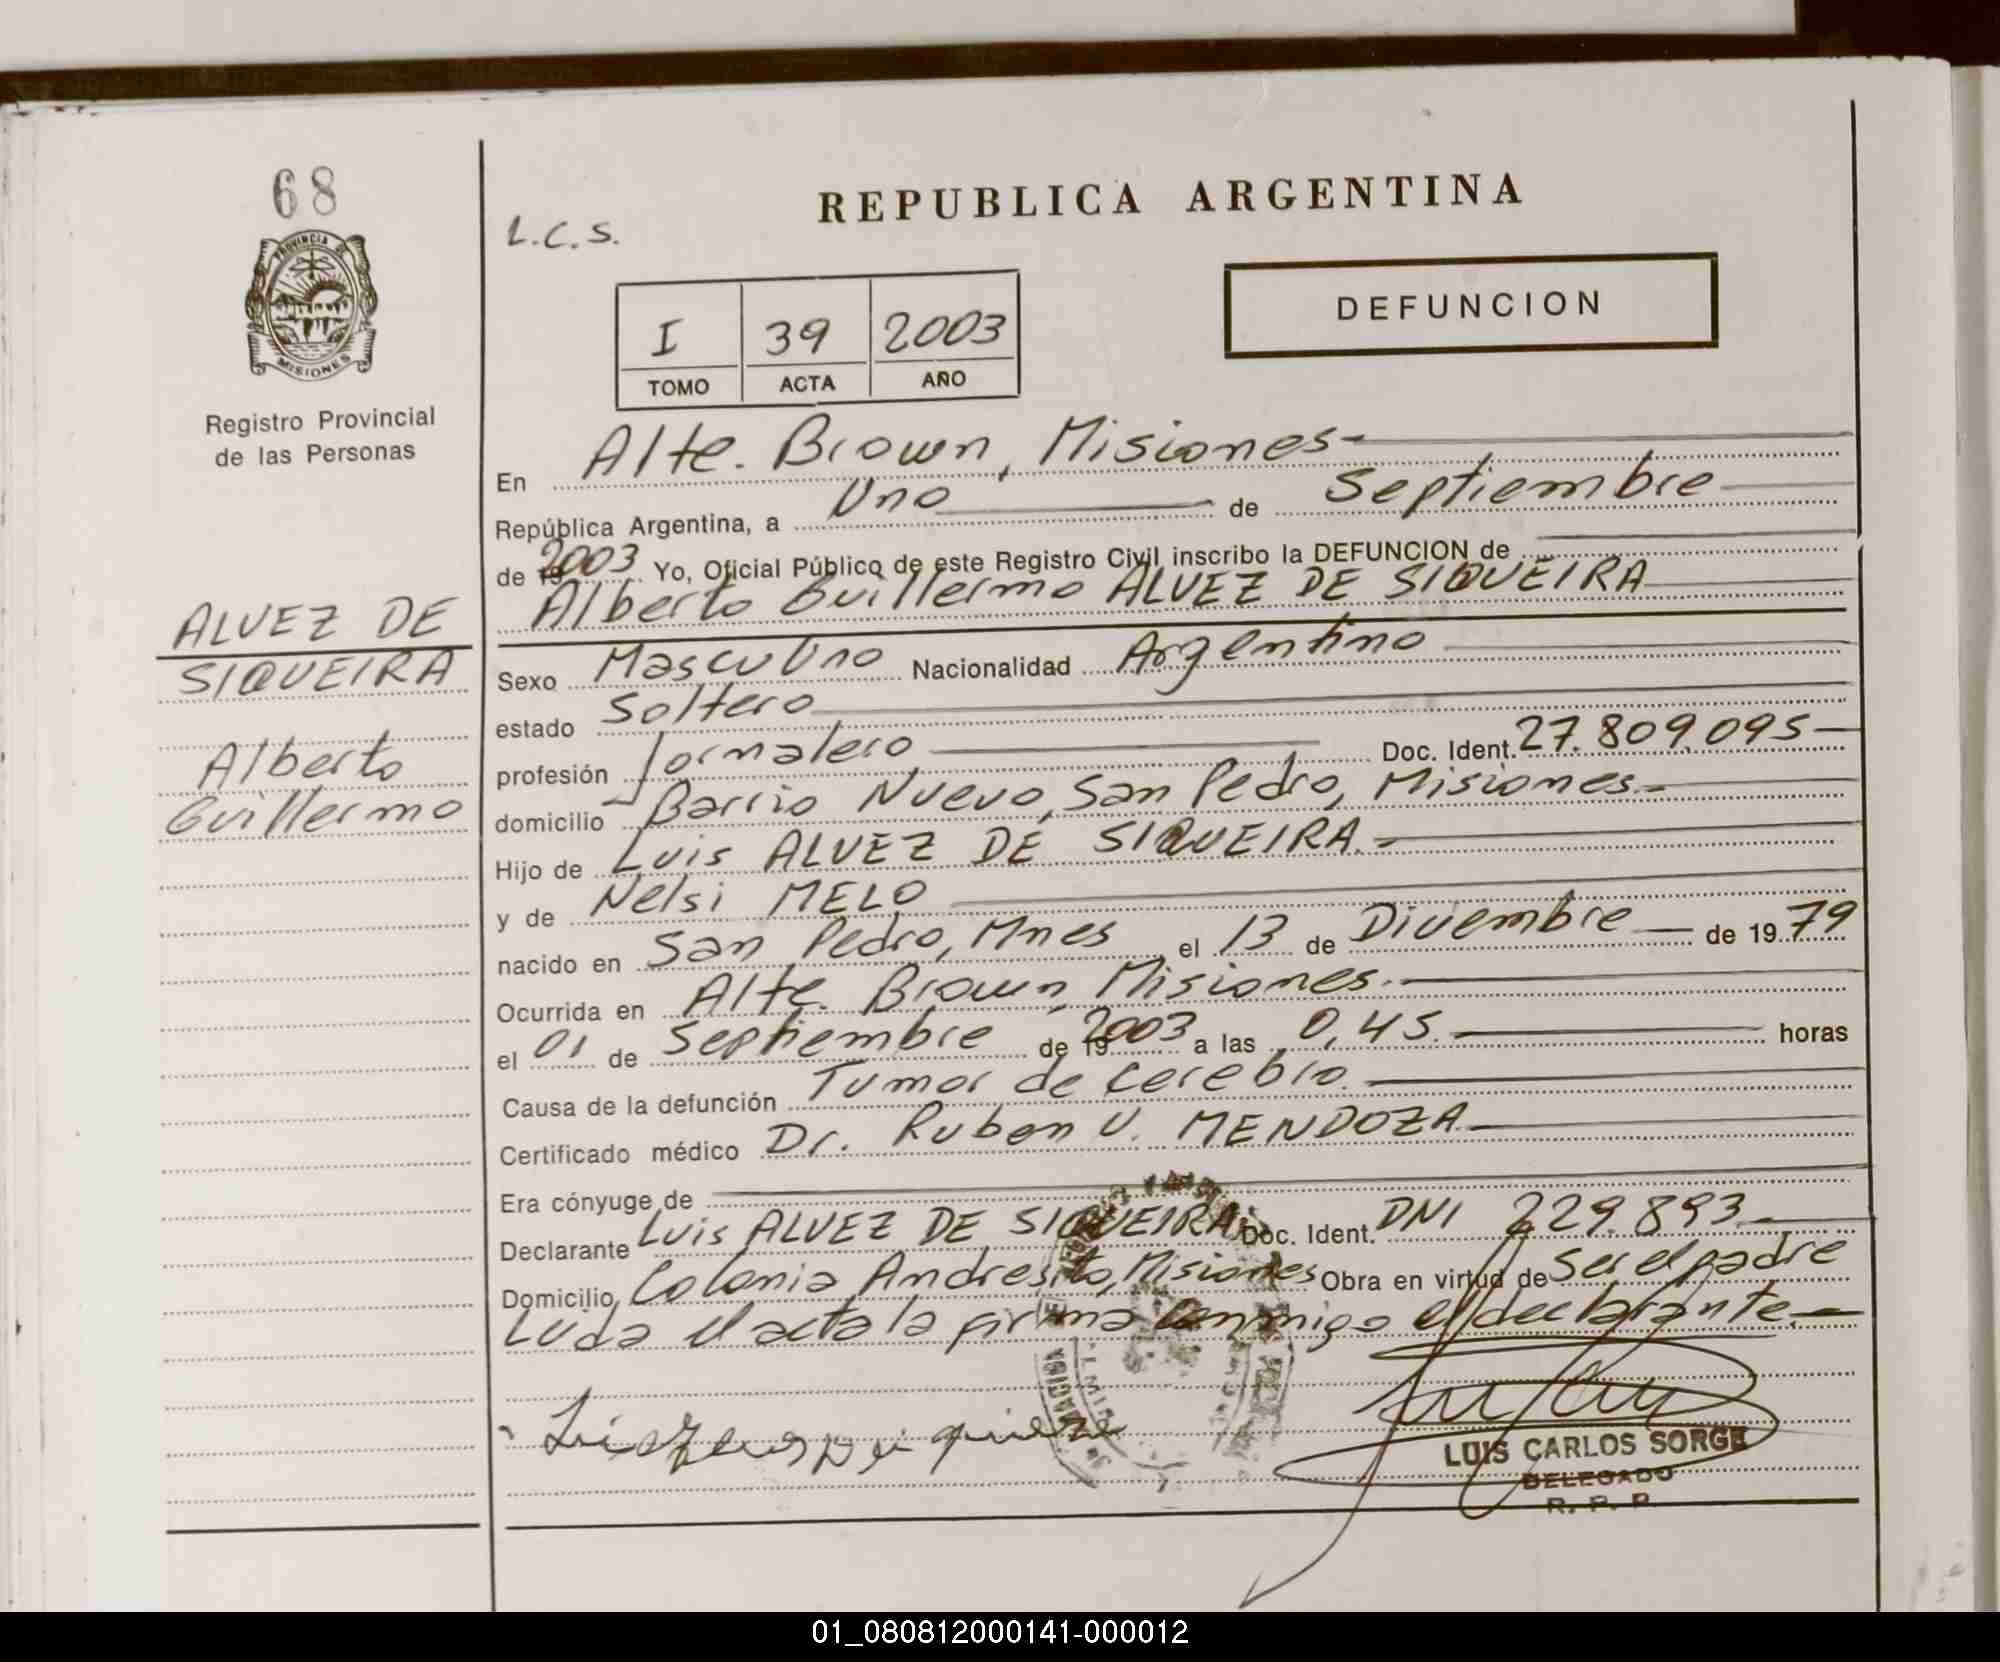 68
PROVINCIA DE
MISIONES
Registro Provincial
de las Personas
ALVEZ DE
SIQUEIRA
Alberto
Guillermo
L.C.S.
REPUBLICA ARGENTINA
I 39 2003
TOMO ACTA AÑO
DEFUNCION
En Alte. Brown, Misiones
República Argentina, a Uno de Septiembre
de 2003 Yo, Oficial Público de este Registro Civil inscribo la DEFUNCION de
Alberto Guillermo ALVEZ DE SIQUEIRA
Sexo Masculino Nacionalidad Argentino
estado Soltero
profesión Jornalero Doc. Ident. 27.809.095
domicilio Barrio Nuevo, San Pedro, Misiones.
Hijo de Luis ALVEZ DE SIQUEIRA.
y de Nelsi MELO
nacido en San Pedro, Mnes el 13 de Diciembre de 1979
Ocurrida en Alte. Brown, Misiones.
el 01 de Septiembre de 2003 a las 0,45. horas
Causa de la defunción Tumor de cerebro.
Certificado médico Dr. Ruben V. MENDOZA
Era cónyuge de
Declarante Luis ALVEZ DE SIQUEIRA Doc. Ident. DNI 229.893
Domicilio Colonia Andresito, Misiones Obra en virtud de Ser el padre
Leida el acta la firma conmigo el declarante.
LUIS CARLOS SORGE
DELEGADO
R. P. P.
01_080812000141-000012